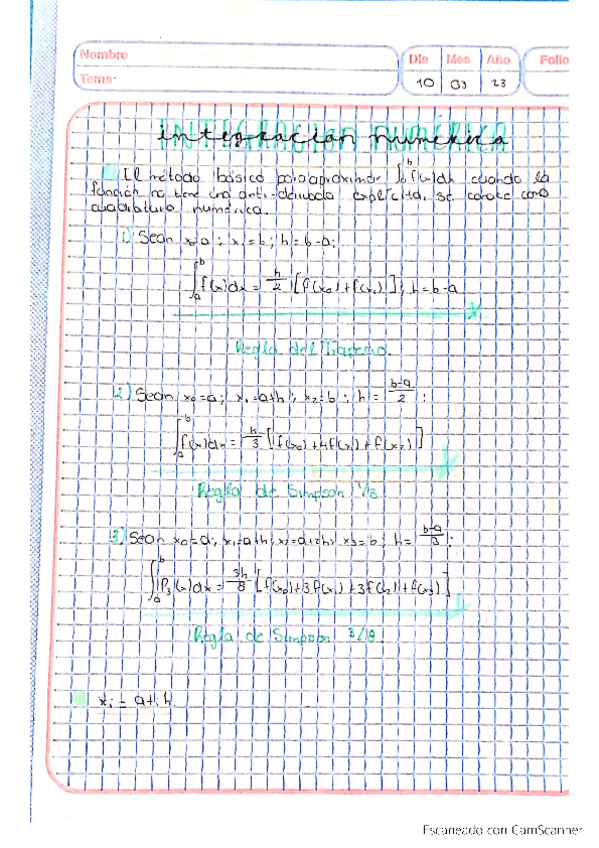 Nombre
Tema:
Día Mes Año Folio
10 03 23
integración numérica
El método básico para aproximar ∫_a^b f(x)dx cuando la
función no tiene una anti-derivada explícita, se conoce como
cuadratura numérica.
1) Sean x₀=a ; x₁=b ; h=b-a:
∫_a^b f(x)dx = h/2 [f(x₀)+f(x₁)] ; h=b-a
Regla del Trapecio.
2) Sean x₀=a; x₁=a+h ; x₂=b ; h= b-a/2 :
∫_a^b f(x)dx = h/3 [f(x₀)+4f(x₁)+f(x₂)]
Regla de Simpson 1/3
3) Sean x₀=a; x₁=a+h; x₂=a+2h; x₃=b ; h= b-a/3 :
∫_a^b P₃(x)dx = 3h/8 [f(x₀)+3f(x₁)+3f(x₂)+f(x₃)]
Regla de Simpson 3/8
xᵢ = a+i h
Escaneado con CamScanner